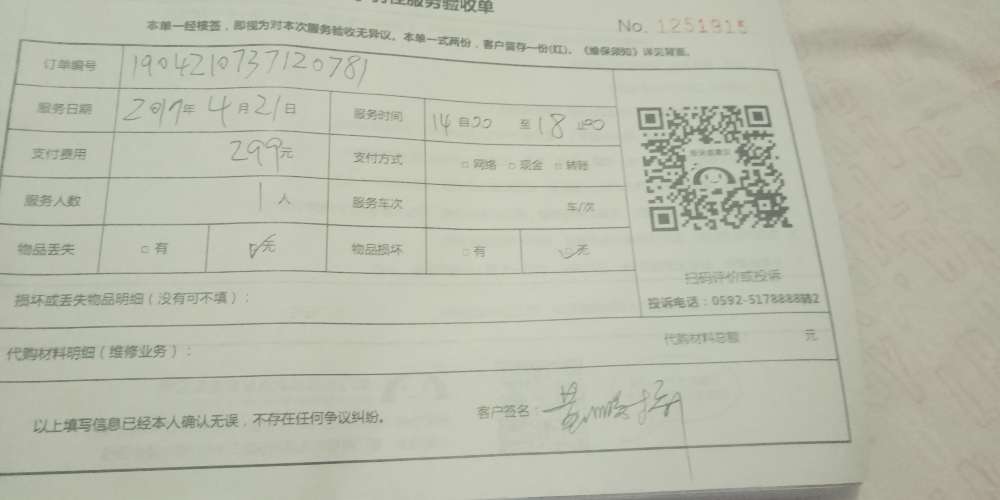 性服务验收单
No. 1251915
本单一经接签，即视为对本次服务验收无异议。本单一式两份，客户留存一份(红)。《维保须知》详见背面。
订单编号 1904210737120781
服务日期 2019年4月21日 服务时间 14:00 至 18:00
支付费用 299元 支付方式 □网络 □现金 □转账
服务人数 1人 服务车次 车/次
物品丢失 □有 ☑无 物品损坏 □有 ☑无
扫码评价或投诉
损坏或丢失物品明细（没有可不填）：
投诉电话：0592-5178888转2
代购材料明细（维修业务）： 代购材料总额 元
以上填写信息已经本人确认无误，不存在任何争议纠纷。 客户签名：黄